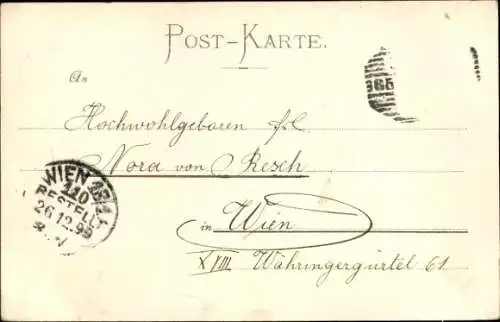 POST-KARTE.
An
Hochwohlgeboren frl.
Nora von Resch
in Wien
XVIII Währingergürtel 61
WIEN 18/1
110
BESTELLT
26.12.99